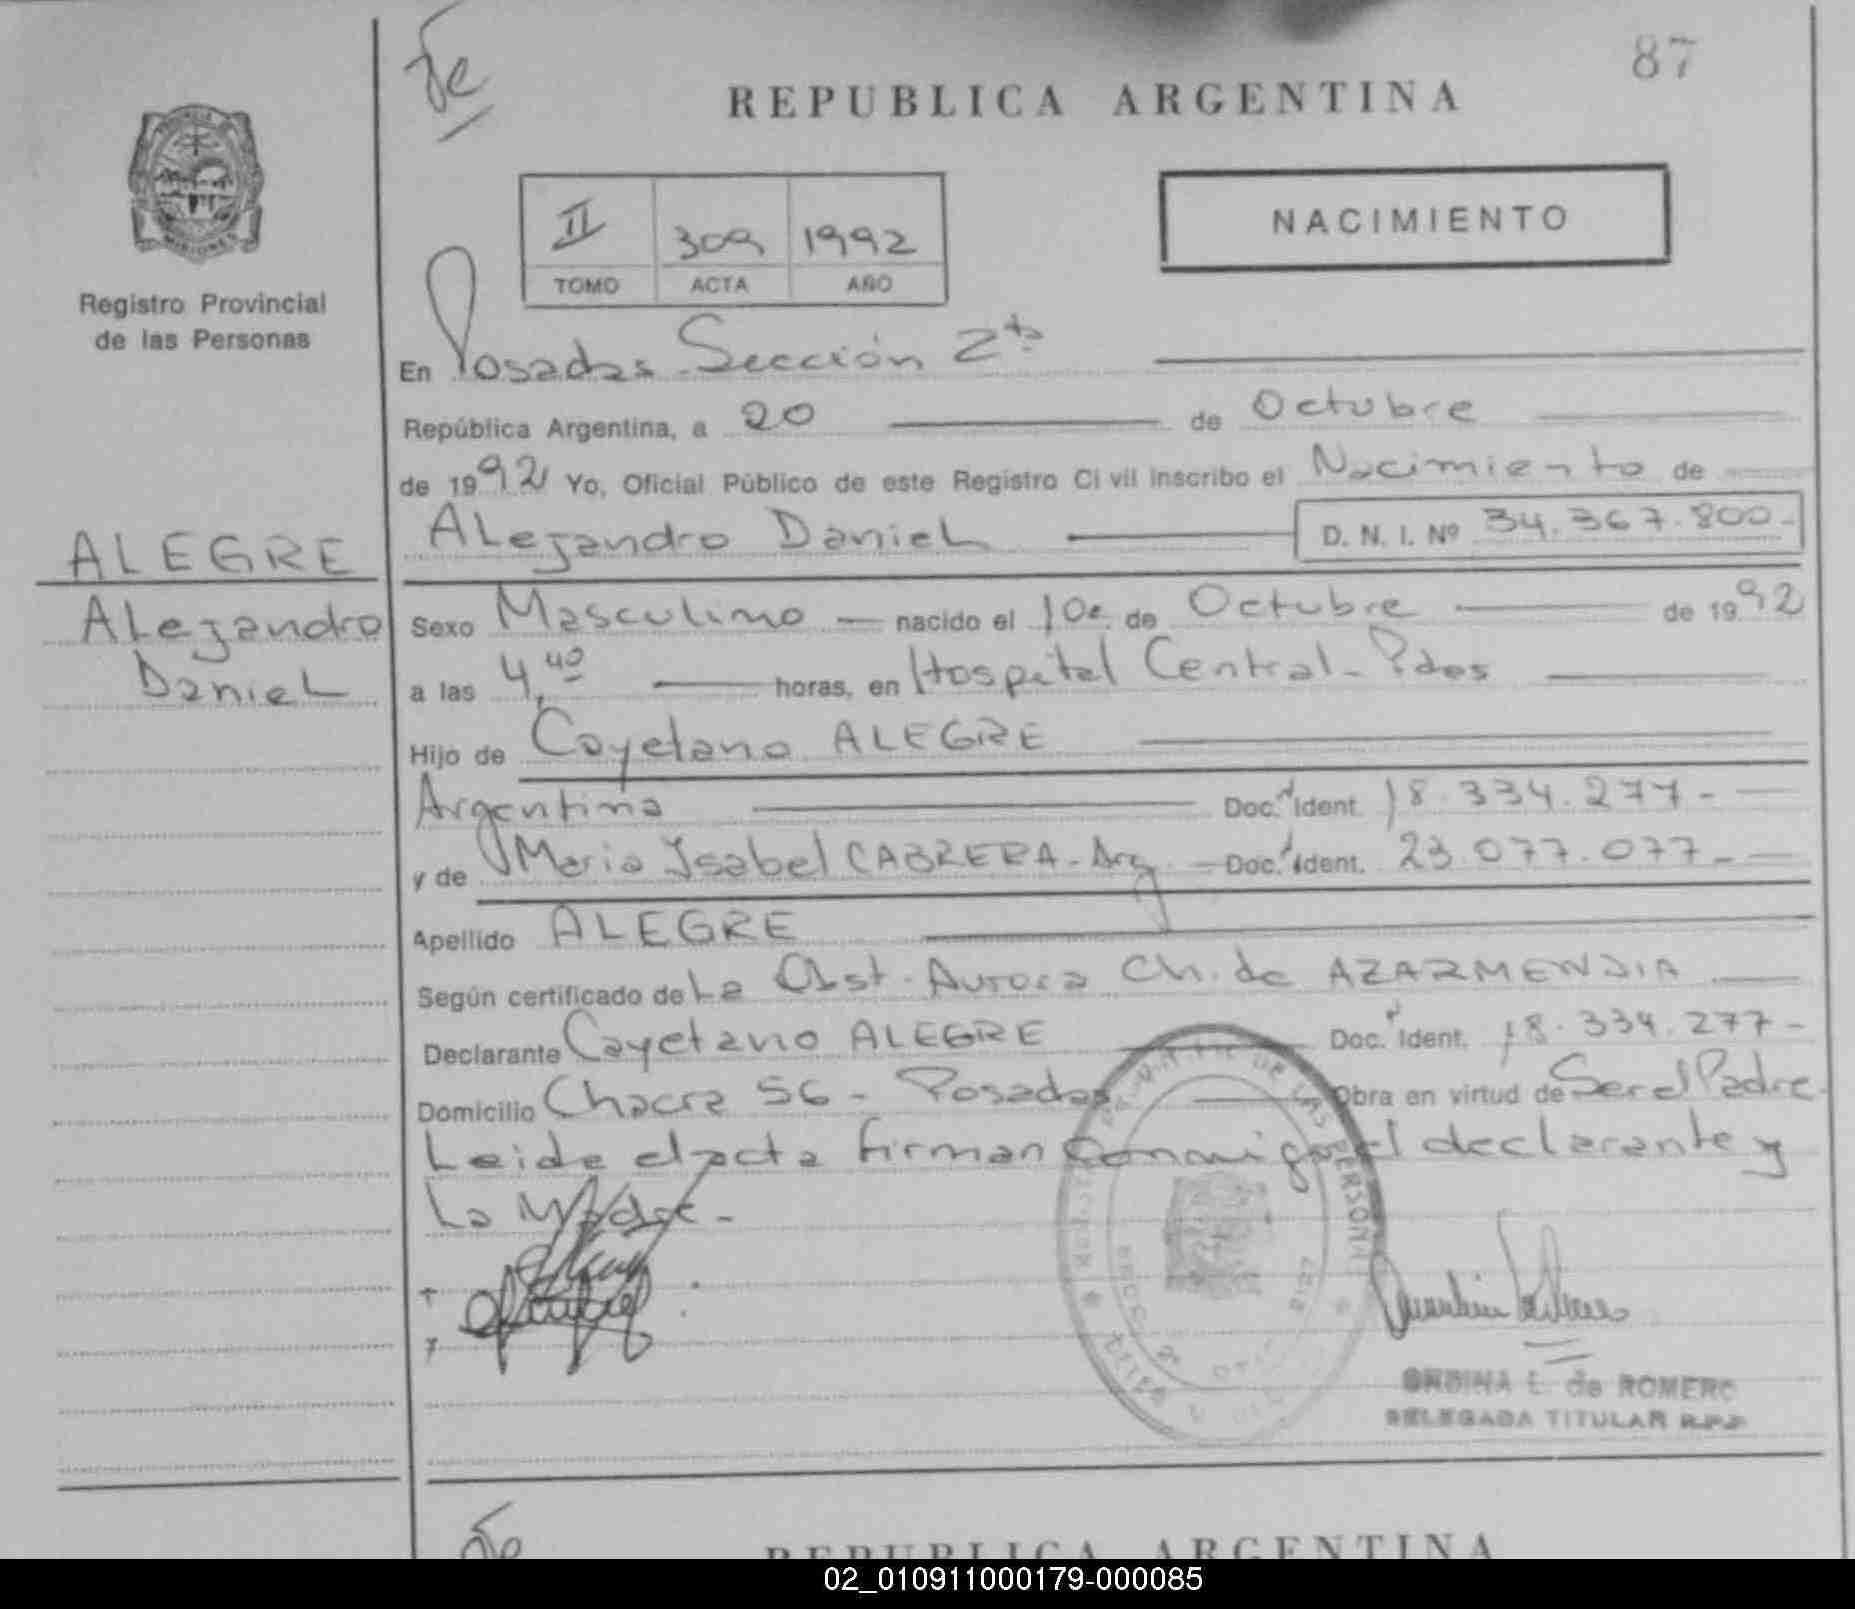 87
REPUBLICA ARGENTINA
NACIMIENTO
II 309 1992
TOMO ACTA AÑO
MISIONES
Registro Provincial
de las Personas
En Posadas Sección 2ta
República Argentina, a 20 de Octubre
de 1992 Yo, Oficial Público de este Registro Civil inscribo el Nacimiento de
Alejandro Daniel D. N. I. Nº 34.367.800-
ALEGRE
Alejandro
Daniel
Sexo Masculino nacido el 10 de Octubre de 1992
a las 4,40 horas, en Hospital Central - Pdas
Hijo de Cayetano ALEGRE
Argentina Doc. Ident. 18.334.277-
y de Maria Isabel CABRERA - Arg Doc. Ident. 23.077.077-
Apellido ALEGRE
Según certificado de La Obst. Aurora Ch. de AZARMENDIA
Declarante Cayetano ALEGRE Doc. Ident. 18.334.277-
Domicilio Chacra 56 - Posadas Obra en virtud de Ser el Padre.
Leida el acta firman conmigo el declarante y
La Madre.-
ONDINA L. de ROMERO
DELEGADA TITULAR R.P.P.
REPUBLICA ARGENTINA
02_010911000179-000085